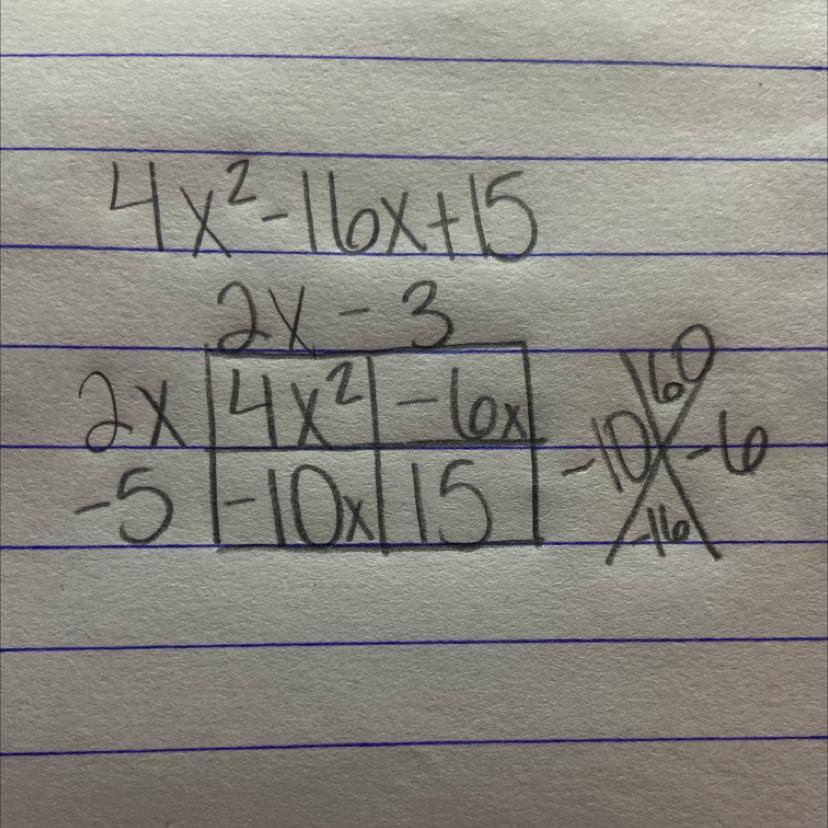 4x²-16x+15
2x - 3
2x 4x² -6x
-5 -10x 15
60
-10 -6
-16